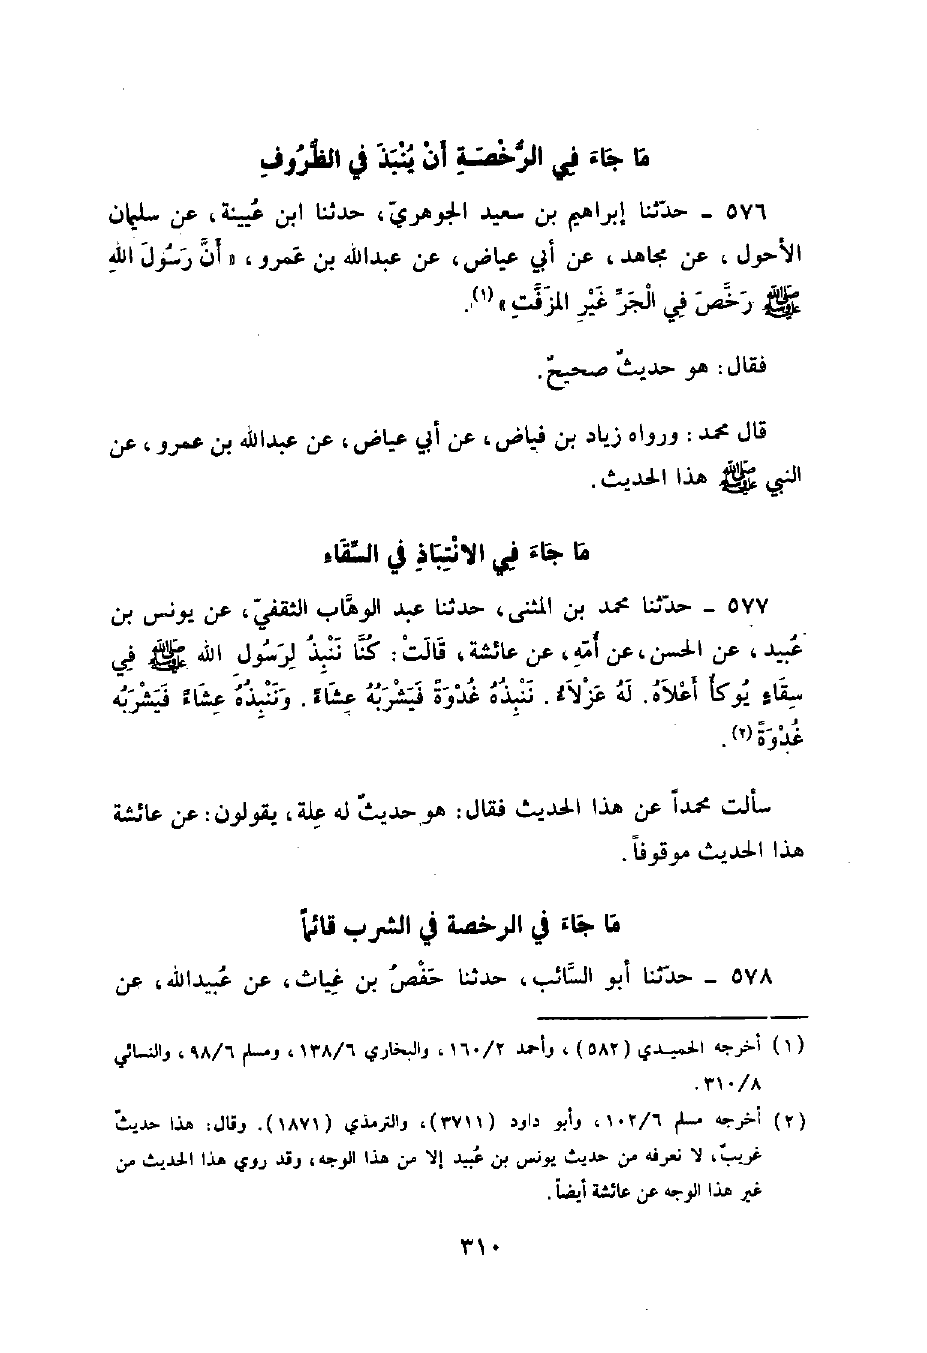 مَا جَاءَ فِي الرُّخْصَةِ أَنْ يُنْبَذَ فِي الظُّرُوفِ
٥٧٦ - حدّثنا إبراهيم بن سعيد الجوهريّ، حدثنا ابن عُيينة، عن سليمان
الأحول، عن مجاهد، عن أبي عياض، عن عبدالله بن عَمرو، « أَنَّ رَسُولَ اللهِ
ﷺ رَخَّصَ فِي الْجَرِّ غَيْرِ المُزَفَّتِ » (١).
فقال: هو حديثٌ صحيحٌ.
قال محمد: ورواه زياد بن فياض، عن أبي عياض، عن عبدالله بن عمرو، عن
النبي ﷺ هذا الحديث.
مَا جَاءَ فِي الانْتِبَاذِ فِي السِّقَاءِ
٥٧٧ - حدّثنا محمد بن المثنى، حدثنا عبد الوهَّاب الثقفيّ، عن يونس بن
عُبيد، عن الحسن، عن أُمّهِ، عن عائشة، قَالَتْ: كُنَّا نَنْبِذُ لِرَسُولِ الله ﷺ فِي
سِقَاءٍ يُوكأُ أَعْلاَهُ. لَهُ عَزْلاَءُ. نَنْبِذُهُ غُدْوَةً فَيَشْرَبُهُ عِشَاءً. وَنَنْبِذُهُ عِشَاءً فَيَشْرَبُه
غُدْوَةً (٢).
سألت محمداً عن هذا الحديث فقال: هو حديثٌ له عِلة، يقولون: عن عائشة
هذا الحديث موقوفاً.
مَا جَاءَ في الرخصة في الشرب قائماً
٥٧٨ - حدّثنا أبو السَّائب، حدثنا حَفْصُ بن غِياث، عن عُبيدالله، عن
(١) أخرجه الحميدي (٥٨٢)، وأحمد ١٦٠/٢، والبخاري ١٣٨/٦، ومسلم ٩٨/٦، والنسائي
٣١٠/٨.
(٢) أخرجه مسلم ١٠٢/٦، وأبو داود (٣٧١١)، والترمذي (١٨٧١). وقال: هذا حديثٌ
غريبٌ، لا نعرفه من حديث يونس بن عُبيد إلا من هذا الوجه، وقد روي هذا الحديث من
غير هذا الوجه عن عائشة أيضاً.
٣١٠